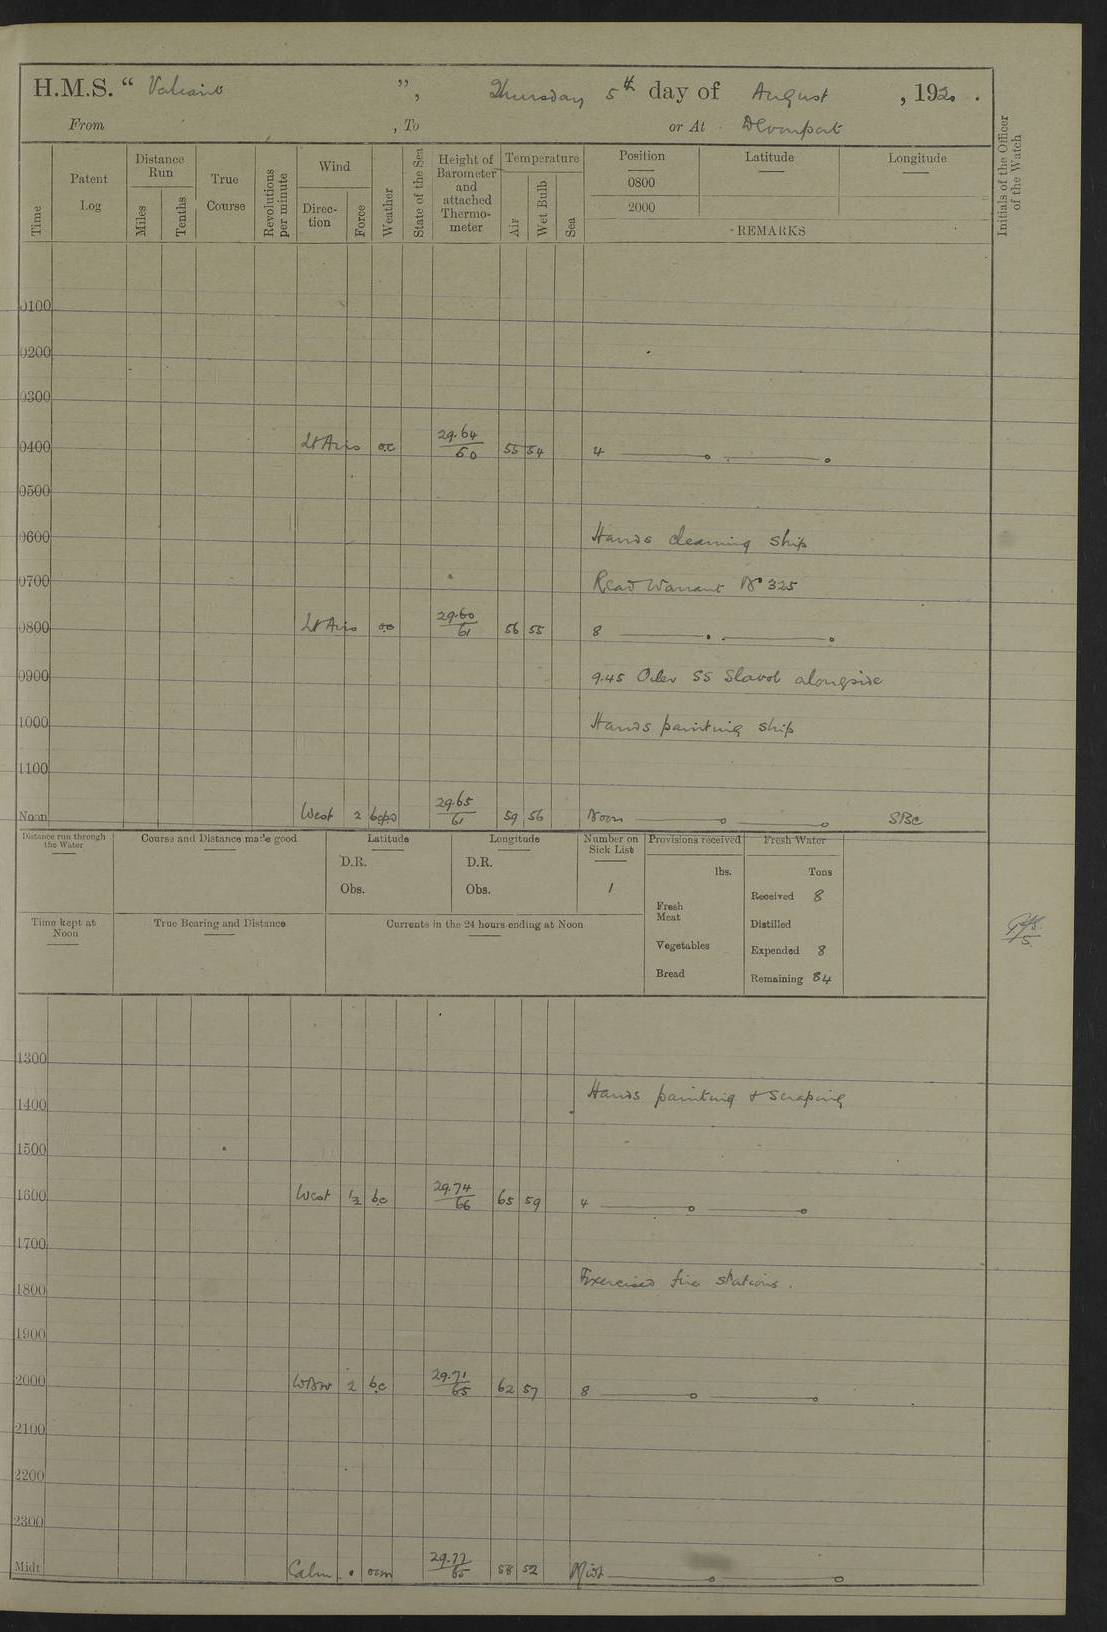 H.M.S. “ Valiant ”, Thursday 5th day of August , 1920 .
From , To or At Devonport
Time
Patent Log
Distance Run
Miles
Tenths
True Course
Revolutions per minute
Wind
Direc- tion
Force
Weather
State of the Sea
Height of Barometer and attached Thermo- meter
Temperature
Air
Wet Bulb
Sea
Position Latitude Longitude
0800
2000
REMARKS
Initials of the Officer of the Watch
0100
0200
0300
0400 Lt Airs oc 29.64 / 60 55 54 4
0500
0600 Hands cleaning ship
0700 Read Warrant No 325
0800 Lt Airs 29.60 / 61 56 55 8
0900 9.45 Oiler SS Slavol alongside
1000 Hands painting ship
1100
Noon West 2 29.65 / 61 59 56 Noon SBC
Distance run through the Water
Course and Distance made good
Latitude
D.R.
Obs.
Longitude
D.R.
Obs.
Number on Sick List
1
Provisions received
lbs.
Fresh Meat
Vegetables
Bread
Fresh Water
Tons
Received 8
Distilled
Expended 8
Remaining 84
Time kept at Noon
True Bearing and Distance
Currents in the 24 hours ending at Noon
1300
1400 Hands painting & scraping
1500
1600 West 1/2 bc 29.74 / 66 65 59 4
1700
1800 Exercised fire stations.
1900
2000 WNW 2 bc 29.71 / 65 62 57 8
2100
2200
2300
Midt Calm 0 ocm 29.77 / 65 58 52 Midt